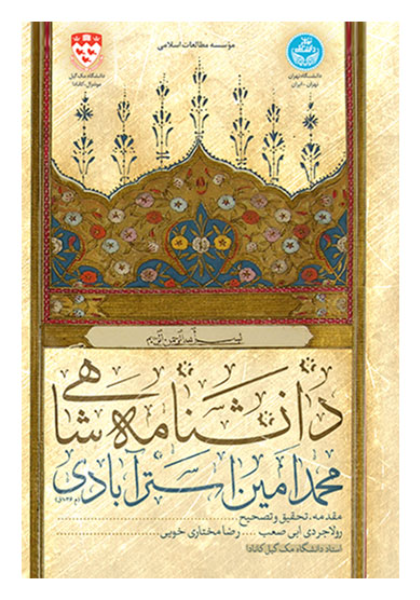 مؤسسه مطالعات اسلامی
دانشگاه تهران
تهران - ایران
دانشگاه مک‌گیل
مونترال، کانادا
بسم الله الرحمن الرحیم
دانشنامه شاهی
محمد امین استرآبادی
مقدمه، تحقیق و تصحیح
رولا جردی ابی صعب .... رضا مختاری خویی
استاد دانشگاه مک گیل کانادا